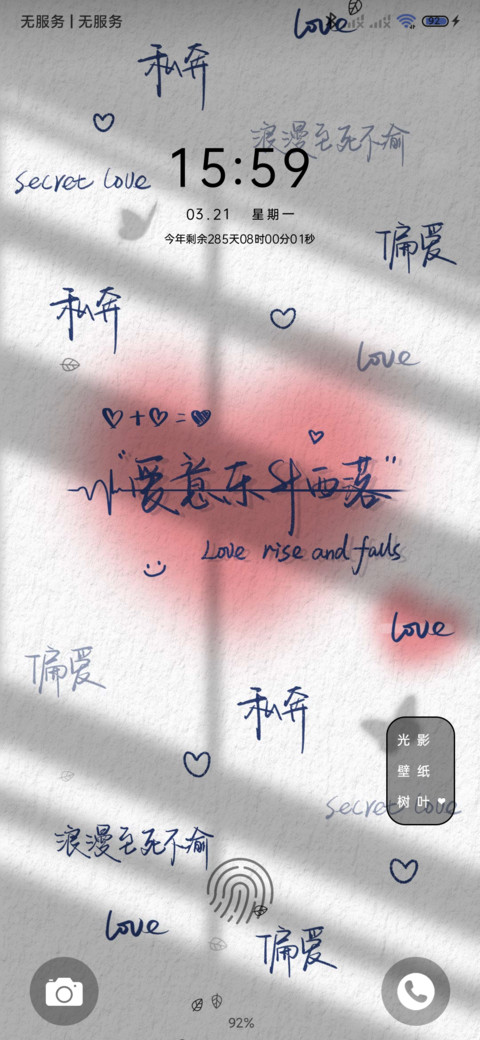 无服务 | 无服务
love
92
私奔
浪漫至死不渝
15:59
secret love
03.21 星期一
今年剩余285天08时00分01秒
偏爱
私奔
love
+ =
"爱意东升西落"
Love rise and falls
love
偏爱
私奔
光影
壁纸
树叶
secret love
浪漫至死不渝
love
偏爱
92%